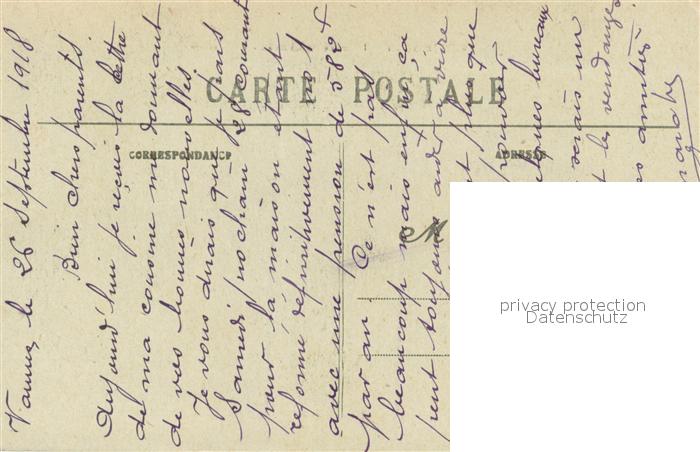 CARTE POSTALE
CORRESPONDANCE
ADRESSE
M
Vannes le 26 Septembre 1918
Bien chers parents
Aujourd'hui je reçois la lettre
de ma cousine me donnant
de vos bonnes nouvelles
Je vous dirais que je pars
Samedi prochain 28 courant
pour la maison étant
réformé définitivement no 1
avec une pension de 582 f
par an. Ce n'est pas
beaucoup mais enfin ça
peut toujours aider a vivre
plus que
pouvoir
quelques bureaux
serais un
les vendanges
amitiés
privacy protection
Datenschutz